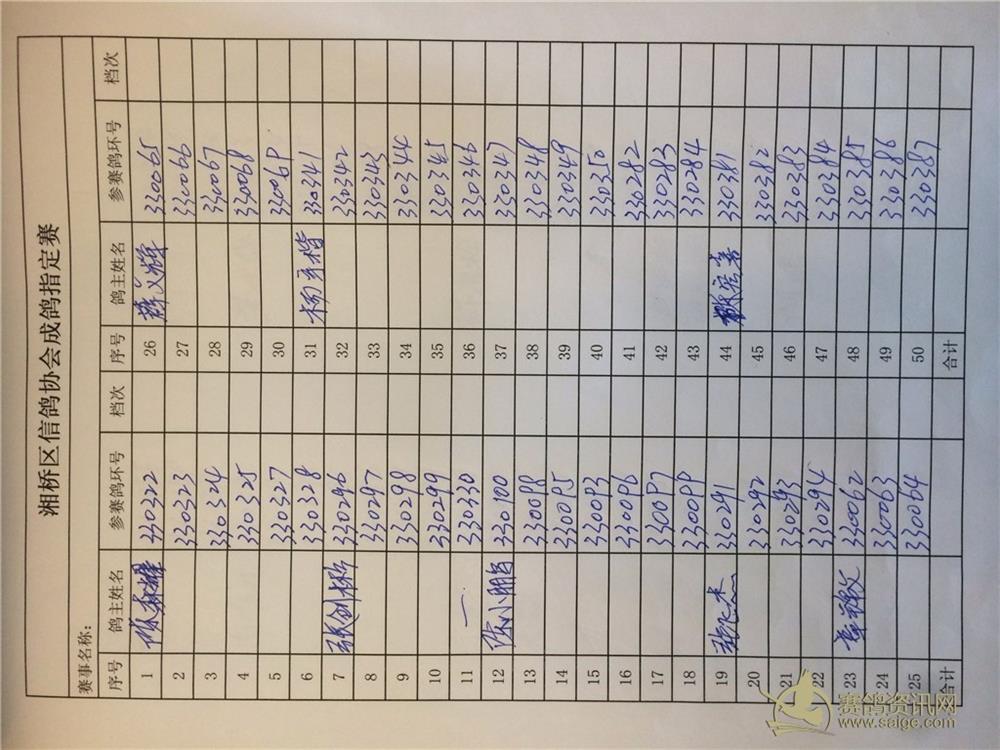 湘桥区信鸽协会成鸽指定赛
赛事名称:
序号 鸽主姓名 参赛鸽环号 档次 序号 鸽主姓名 参赛鸽环号 档次
1 330322 26 330065
2 330323 27 330066
3 330324 28 330067
4 330325 29 330068
5 330327 30 330069
6 330328 31 330341
7 张创彬 330296 32 330342
8 330297 33 330343
9 330298 34 330344
10 330299 35 330345
11 一 330230 36 330346
12 陈小鹏 330100 37 330347
13 330098 38 330348
14 330095 39 330349
15 330093 40 330350
16 330096 41 330282
17 330097 42 330283
18 330099 43 330284
19 330291 44 330381
20 330292 45 330382
21 330293 46 330383
22 330294 47 330384
23 330062 48 330385
24 330063 49 330386
25 330064 50 330387
合计 合计
赛鸽资讯网
www.saige.com